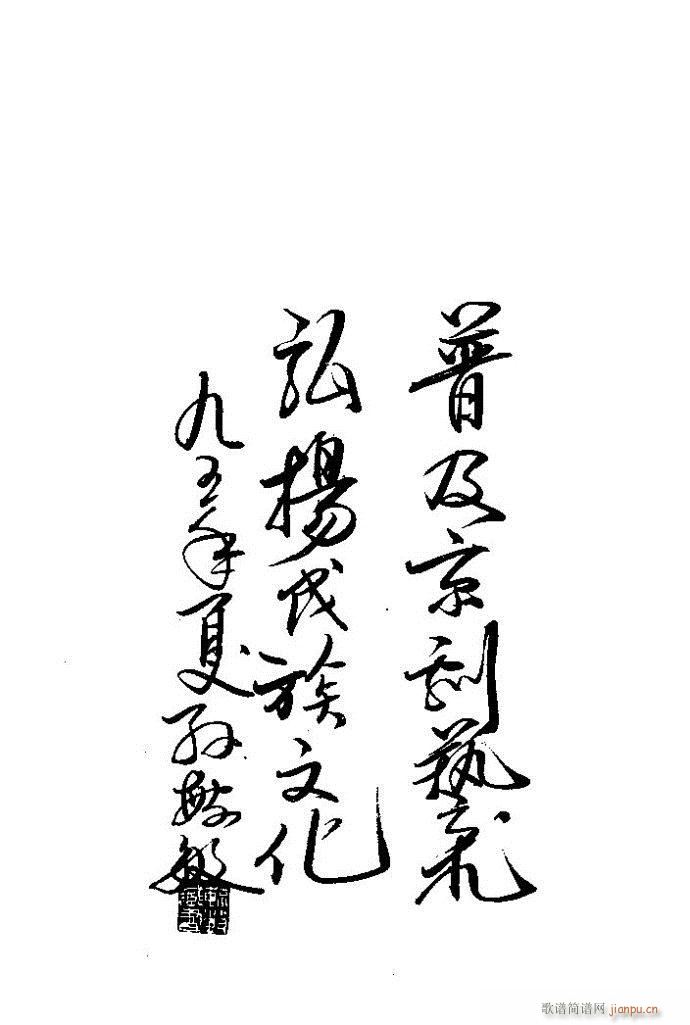 普及京剧艺术
弘揚民族文化
九五年夏孙敬敏
歌谱简谱网 jianpu.cn